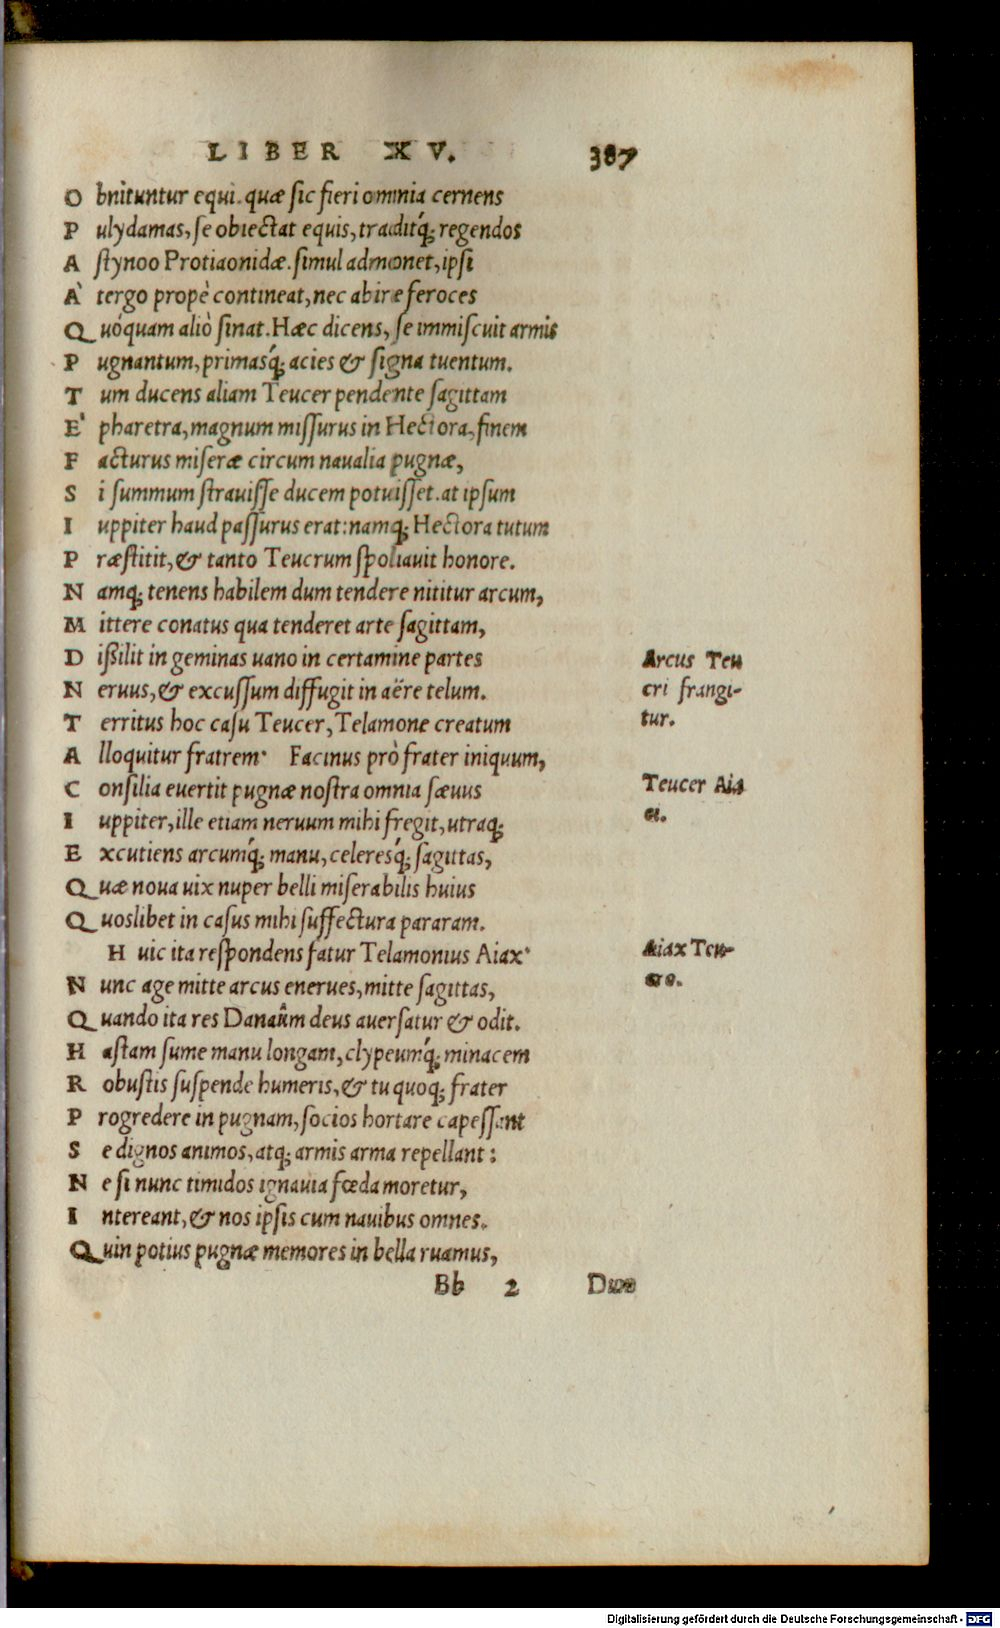 LIBER XV. 387
O bnituntur equi. quæ sic fieri omnia cernens
P ulydamas, se obiectat equis, traditq́; regendos
A stynoo Protiaonidæ. simul admonet, ipsi
A̍ tergo propè contineat, nec abire feroces
Q uóquam aliò sinat. Hæc dicens, se immiscuit armis
P ugnantum, primasq́; acies & signa tuentum.
T um ducens aliam Teucer pendente sagittam
E̍ pharetra, magnum missurus in Hectora, finem
F acturus miseræ circum naualia pugnæ,
S i summum strauisse ducem potuisset. at ipsum
I uppiter haud passurus erat: namq; Hectora tutum
P ræstitit, & tanto Teucrum spoliauit honore.
N amq; tenens habilem dum tendere nititur arcum,
M ittere conatus qua tenderet arte sagittam,
D ißilit in geminas uano in certamine partes
N eruus, & excussum diffugit in aëre telum.
T erritus hoc casu Teucer, Telamone creatum
A lloquitur fratrem· Facinus prò frater iniquum,
C onsilia euertit pugnæ nostra omnia sæuus
I uppiter, ille etiam neruum mihi fregit, utraq;
E xcutiens arcumq́; manu, celeresq́; sagittas,
Q uæ noua uix nuper belli miserabilis huius
Q uoslibet in casus mihi suffectura pararam.
H uic ita respondens fatur Telamonius Aiax·
N unc age mitte arcus enerues, mitte sagittas,
Q uando ita res Danaûm deus auersatur & odit.
H astam sume manu longam, clypeumq́; minacem
R obustis suspende humeris, & tu quoq; frater
P rogredere in pugnam, socios hortare capessant
S e dignos animos, atq; armis arma repellant:
N e si nunc timidos ignauia fœda moretur,
I ntereant, & nos ipsis cum nauibus omnes.
Q uin potius pugnæ memores in bella ruamus,
Bb 2
Arcus Teu
cri frangi-
tur.
Teucer Aia
ci.
Aiax Teu-
cro.
Digitalisierung gefördert durch die Deutsche Forschungsgemeinschaft - DFG